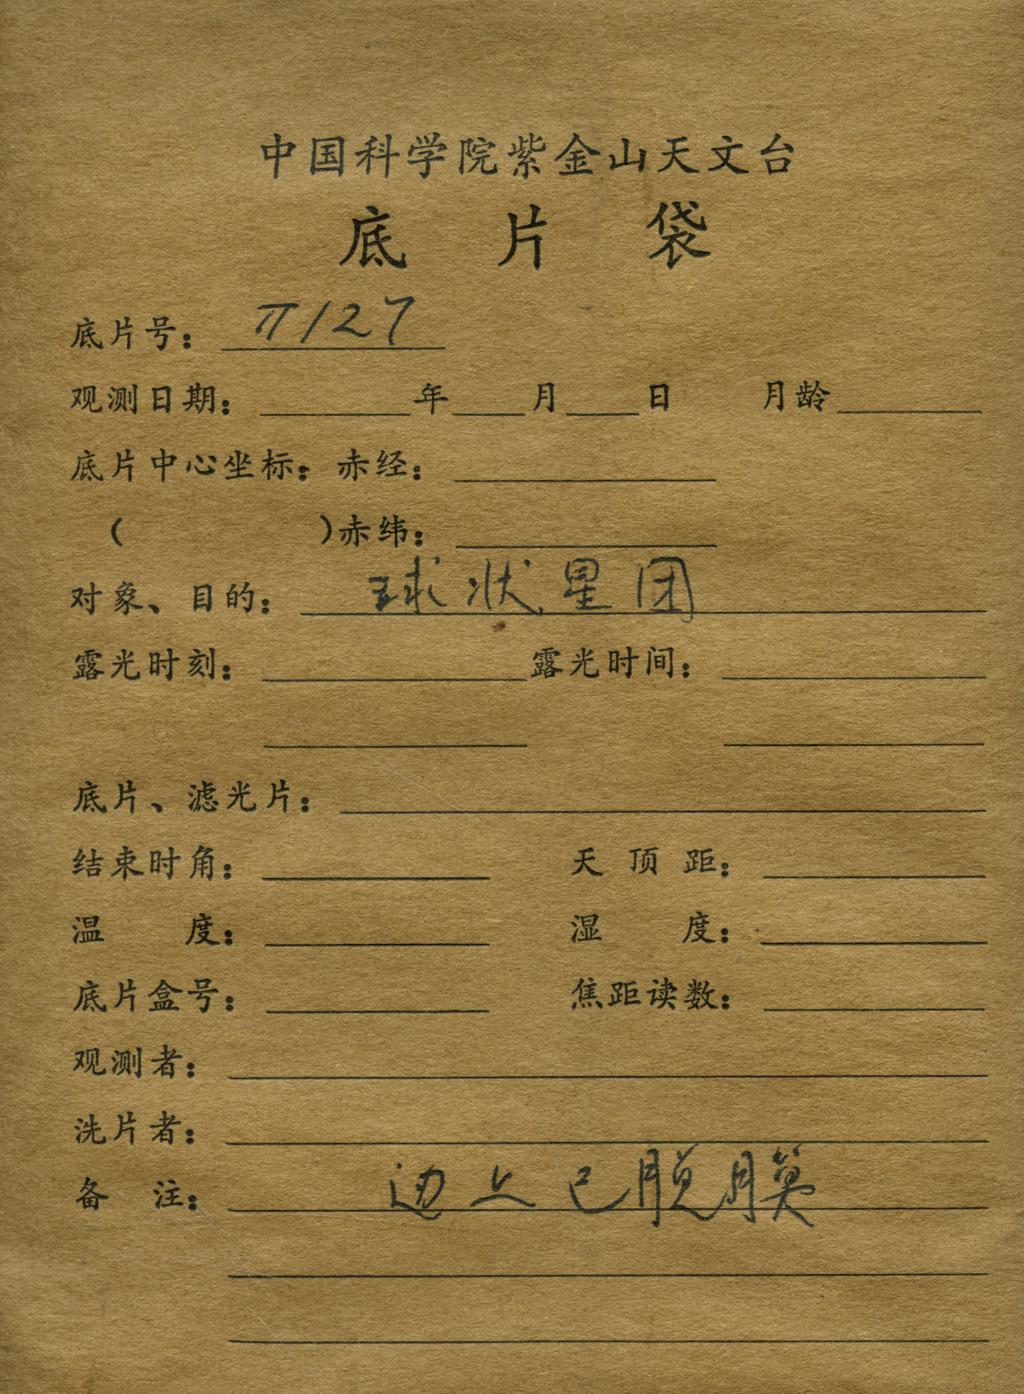 中国科学院紫金山天文台
底片袋
底片号：π127
观测日期：____年__月__日 月龄____
底片中心坐标：赤经：
（ ）赤纬：
对象、目的：球状星团
露光时刻： 露光时间：
底片、滤光片：
结束时角： 天顶距：
温度： 湿度：
底片盒号： 焦距读数：
观测者：
洗片者：
备注：边上已脱膜